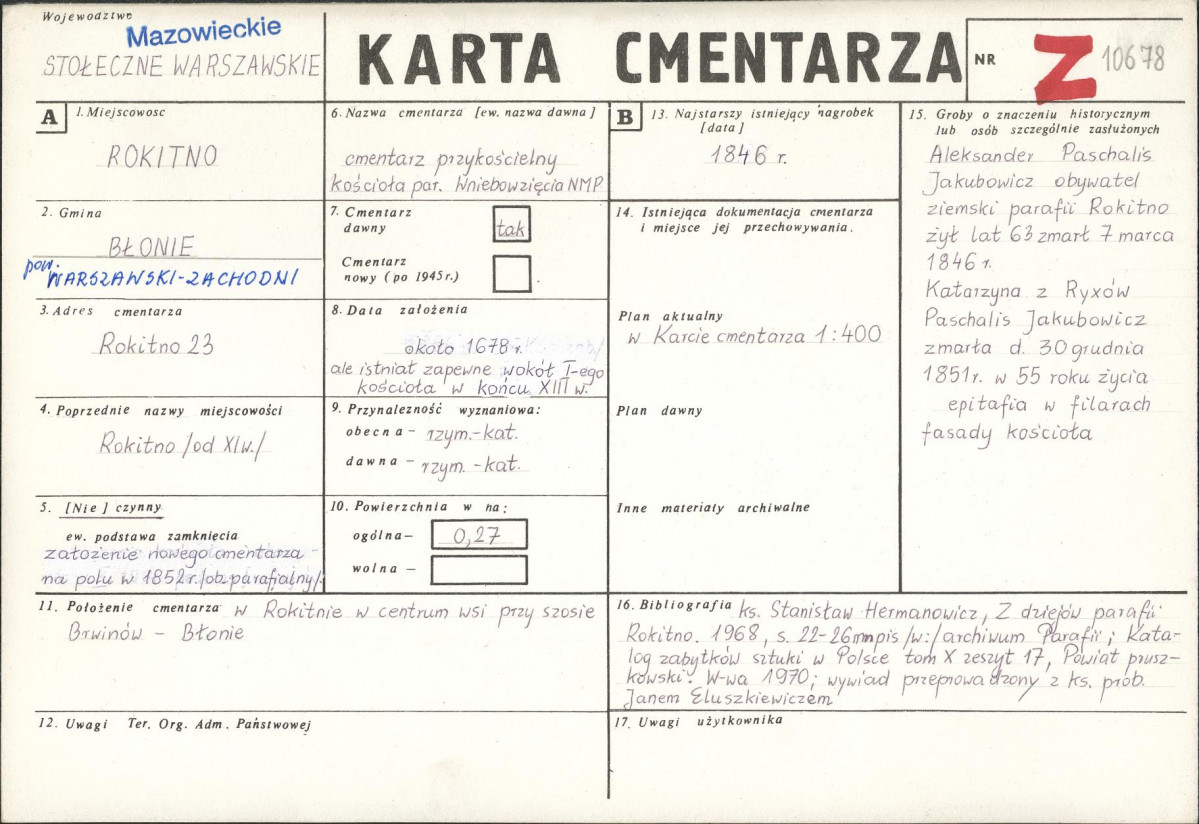 Województwo
Mazowieckie
STOŁECZNE WARSZAWSKIE
KARTA CMENTARZA
NR
Z 10678
A
1. Miejscowosc
ROKITNO
2. Gmina
BŁONIE
pow.
WARSZAWSKI-ZACHODNI
3. Adres cmentarza
Rokitno 23
4. Poprzednie nazwy miejscowości
Rokitno /od XI w./
5. [Nie] czynny
ew. podstawa zamknięcia
założenie nowego cmentarza
na polu w 1852 r. /ob. parafialny/
6. Nazwa cmentarza [ew. nazwa dawna]
cmentarz przykościelny
kościoła par. Wniebowzięcia NMP
7. Cmentarz
dawny
tak
Cmentarz
nowy (po 1945 r.)
8. Data założenia
około 1678 r.
ale istniał zapewne wokół I-ego
kościoła w końcu XIII w.
9. Przynależność wyznaniowa:
obecna – rzym.-kat.
dawna – rzym.-kat.
10. Powierzchnia w ha:
ogólna – 0,27
wolna –
B
13. Najstarszy istniejący nagrobek
[data]
1846 r.
14. Istniejąca dokumentacja cmentarza
i miejsce jej przechowywania.
Plan aktualny
w Karcie cmentarza 1:400
Plan dawny
Inne materiały archiwalne
15. Groby o znaczeniu historycznym
lub osób szczególnie zasłużonych
Aleksander Paschalis
Jakubowicz obywatel
ziemski parafii Rokitno
żył lat 63 zmarł 7 marca
1846 r.
Katarzyna z Ryxów
Paschalis Jakubowicz
zmarła d. 30 grudnia
1851 r. w 55 roku życia
epitafia w filarach
fasady kościoła
11. Położenie cmentarza w Rokitnie w centrum wsi przy szosie
Brwinów – Błonie
16. Bibliografia ks. Stanisław Hermanowicz, Z dziejów parafii
Rokitno. 1968, s. 22-26 mnpis /w:/ archiwum Parafii; Kata-
log zabytków sztuki w Polsce tom X zeszyt 17, Powiat prusz-
kowski. W-wa 1970; wywiad przeprowadzony z ks. prob.
Janem Eluszkiewiczem
12. Uwagi Ter. Org. Adm. Państwowej
17. Uwagi użytkownika